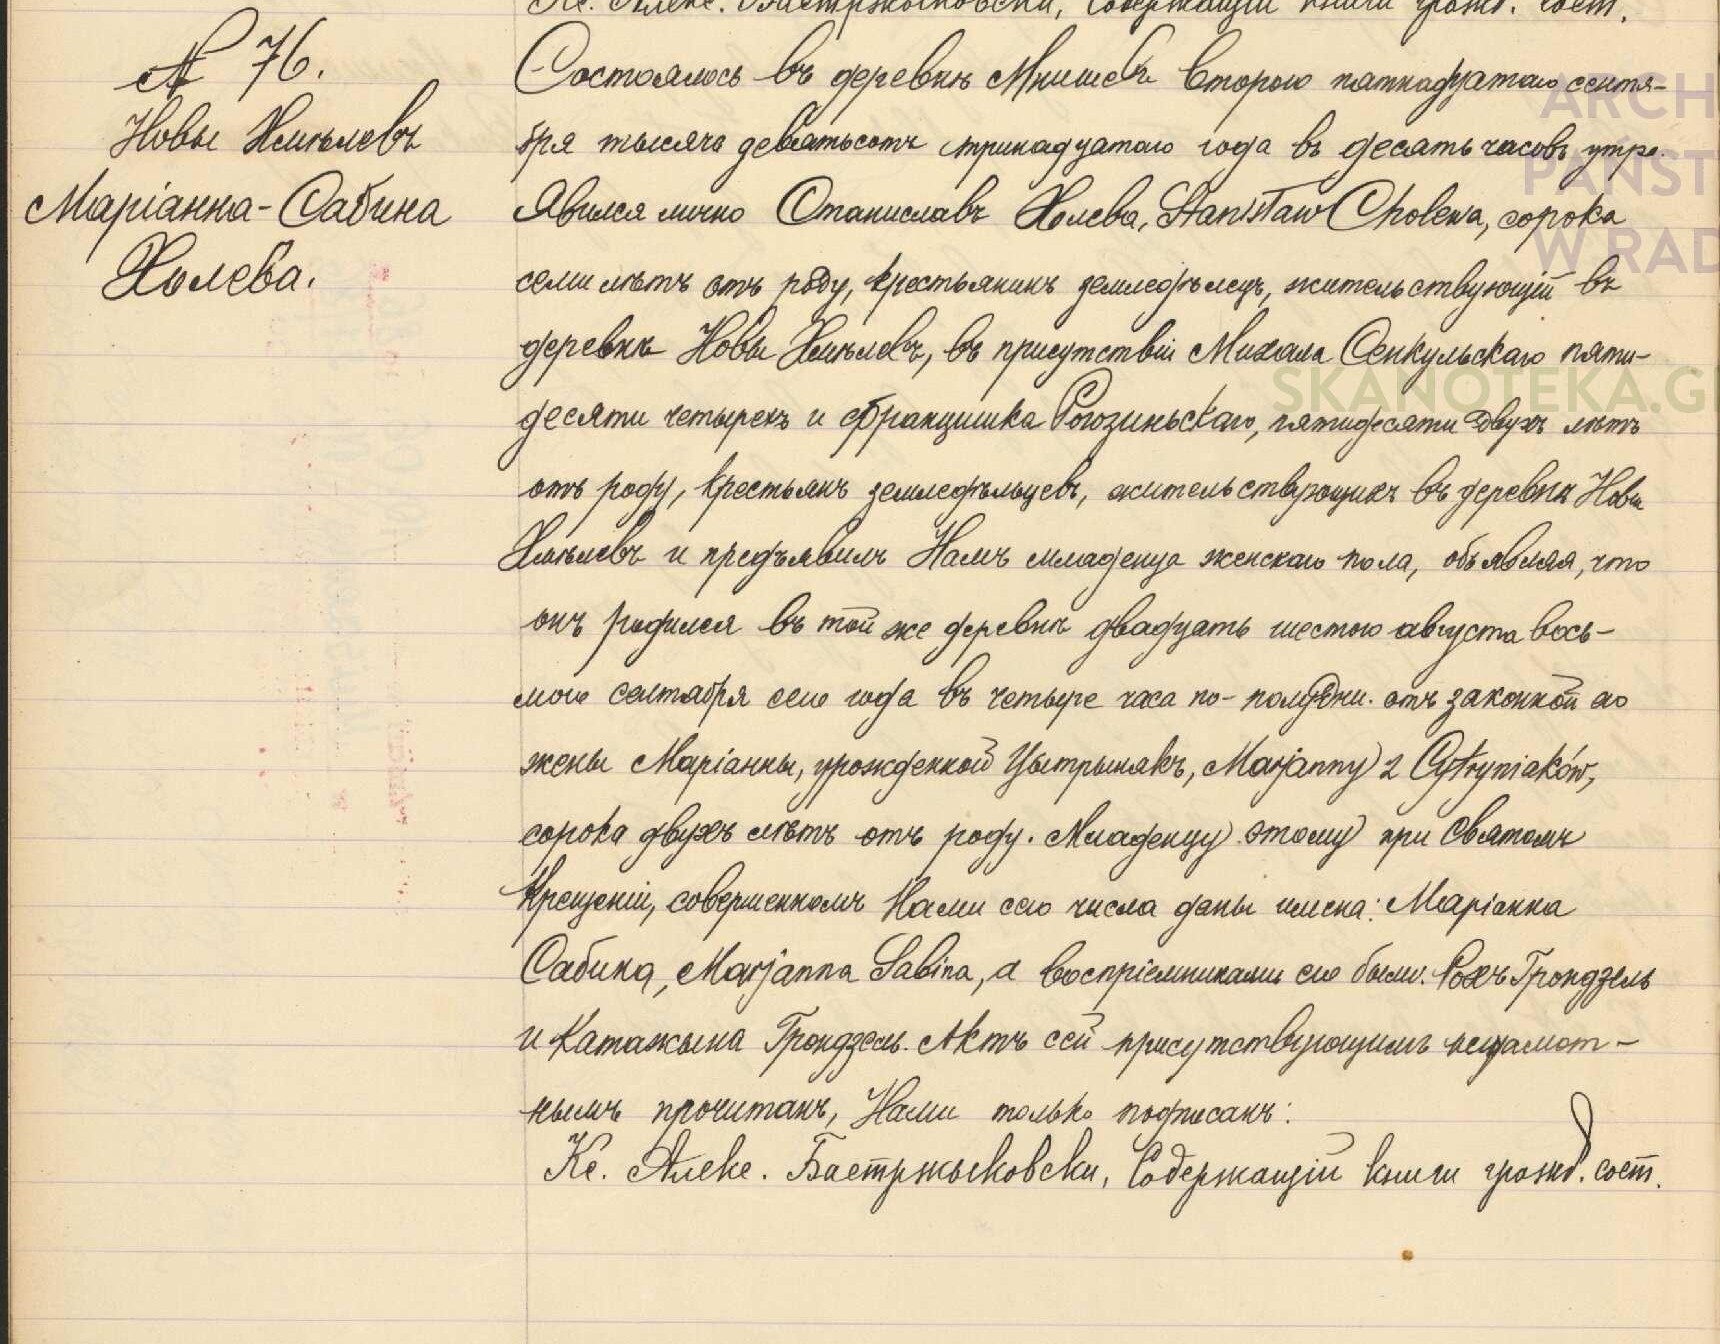 Кс. Алекс. Бастржыковски, Содержащій книги гражд. сост.
№ 76.
Новы Хмѣлевъ
Маріанна-Сабина
Холева.
Состоялось въ деревнѣ Мнишекъ второго пятнадцатаго сентя-
бря тысяча девятьсотъ тринадцатаго года въ десять часовъ утра.
Явился лично Станиславъ Холева, Stanisław Cholewa, сорока
семи лѣтъ отъ роду, крестьянинъ земледѣлецъ, жительствующій въ
деревнѣ Новы Хмѣлевъ, въ присутствіи Михала Сенкульскаго пяти-
десяти четырехъ и Францишка Рогозиньскаго, пятидесяти двухъ лѣтъ
отъ роду, крестьянъ земледѣльцевъ, жительствующихъ въ деревнѣ Новы
Хмѣлевъ и предъявилъ Намъ младенца женскаго пола, объявляя, что
онъ родился въ той же деревнѣ двадцать шестого августа вось-
мого сентября сего года въ четыре часа по-полудни. отъ законной его
жены Маріанны, урожденной Цытрынякъ, Marjanny z Cytryniaków,
сорока двухъ лѣтъ отъ роду. Младенцу этому при Святомъ
Крещеніи, совершенномъ Нами сего числа даны имена: Маріанна
Сабина, Marjanna Sabina, а воспріемниками его были: Рохъ Грондзель
и Катажына Грондзель. Актъ сей присутствующимъ неграмот-
нымъ прочитанъ, Нами только подписанъ:
Кс. Алекс. Бастржыковски, Содержащій книги гражд. сост.
ARCH
PAŃST
W RAD
SKANOTEKA.G